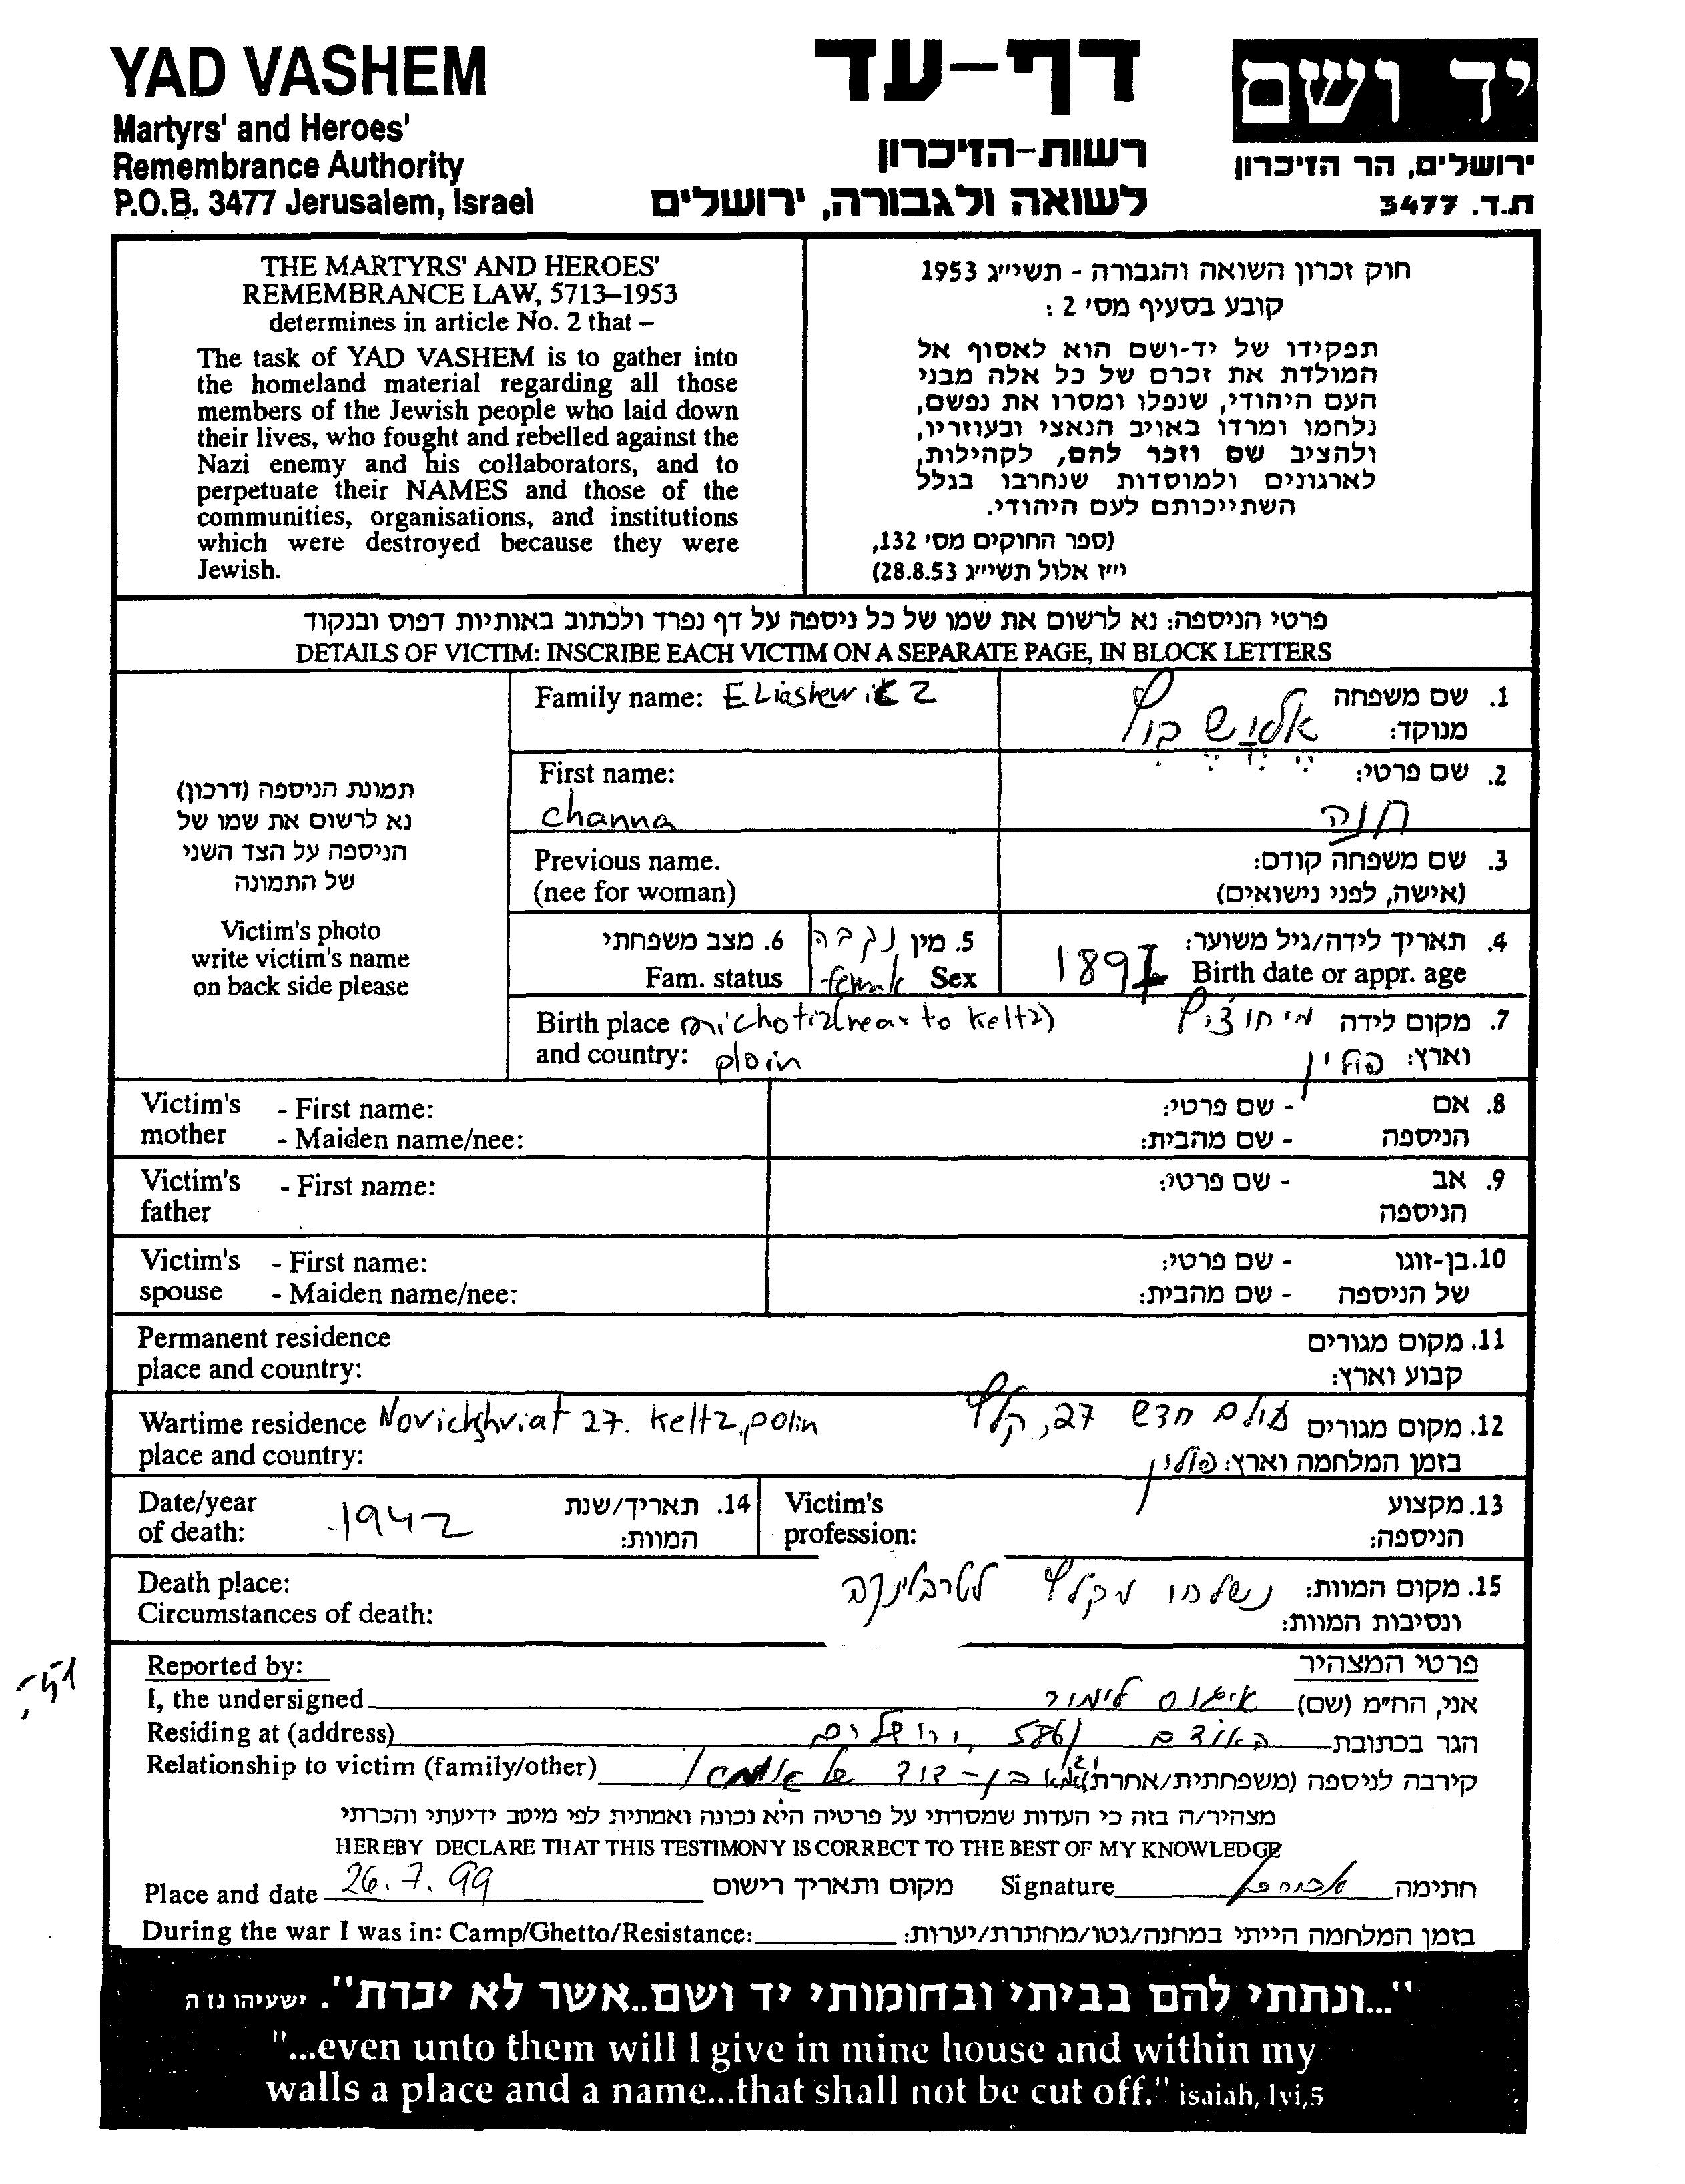 YAD VASHEM
Martyrs' and Heroes'
Remembrance Authority
P.O.B. 3477 Jerusalem, Israel
דף-עד
רשות-הזיכרון
לשואה ולגבורה, ירושלים
יד ושם
ירושלים, הר הזיכרון
ת.ד. 3477
THE MARTYRS' AND HEROES'
REMEMBRANCE LAW, 5713–1953
determines in article No. 2 that –
The task of YAD VASHEM is to gather into
the homeland material regarding all those
members of the Jewish people who laid down
their lives, who fought and rebelled against the
Nazi enemy and his collaborators, and to
perpetuate their NAMES and those of the
communities, organisations, and institutions
which were destroyed because they were
Jewish.
חוק זכרון השואה והגבורה - תשי״ג 1953
קובע בסעיף מס' 2 :
תפקידו של יד-ושם הוא לאסוף אל
המולדת את זכרם של כל אלה מבני
העם היהודי, שנפלו ומסרו את נפשם,
נלחמו ומרדו באויב הנאצי ובעוזריו,
ולהציב שם וזכר להם, לקהילות,
לארגונים ולמוסדות שנחרבו בגלל
השתייכותם לעם היהודי.
(ספר החוקים מס' 132,
י״ז אלול תשי״ג 28.8.53)
פרטי הניספה: נא לרשום את שמו של כל ניספה על דף נפרד ולכתוב באותיות דפוס ובנקוד
DETAILS OF VICTIM: INSCRIBE EACH VICTIM ON A SEPARATE PAGE, IN BLOCK LETTERS
תמונת הניספה (דרכון)
נא לרשום את שמו של
הניספה על הצד השני
של התמונה
Victim's photo
write victim's name
on back side please
Family name: ELiashewitz
1. שם משפחה
מנוקד:
First name:
channa
2. שם פרטי:
חנה
Previous name.
(nee for woman)
3. שם משפחה קודם:
(אישה, לפני נישואים)
6. מצב משפחתי
Fam. status
5. מין נקבה
female Sex
4. תאריך לידה/גיל משוער:
1897 Birth date or appr. age
Birth place michotiz(near to keltz)
and country: ploin
7. מקום לידה
וארץ: פולין
Victim's - First name:
mother - Maiden name/nee:
8. אם - שם פרטי:
הניספה - שם מהבית:
Victim's - First name:
father
9. אב - שם פרטי:
הניספה
Victim's - First name:
spouse - Maiden name/nee:
10. בן-זוגו - שם פרטי:
של הניספה - שם מהבית:
Permanent residence
place and country:
11. מקום מגורים
קבוע וארץ:
Wartime residence 27. keltz, polin
place and country:
12. מקום מגורים עולם חדש 27, קלץ
בזמן המלחמה וארץ: פולין
Date/year
of death: 1942
14. תאריך/שנת
המוות:
Victim's
profession:
13. מקצוע
הניספה:
Death place:
Circumstances of death:
15. מקום המוות: נשלחו מקלץ לטרבלינקה
ונסיבות המוות:
Reported by:
פרטי המצהיר
I, the undersigned
אני, הח״מ (שם) לימור
Residing at (address)
הגר בכתובת ירושלים
Relationship to victim (family/other)
קירבה לניספה (משפחתית/אחרת) בן-דוד של
מצהיר/ה בזה כי העדות שמסרתי על פרטיה היא נכונה ואמתית לפי מיטב ידיעתי והכרתי
HEREBY DECLARE THAT THIS TESTIMONY IS CORRECT TO THE BEST OF MY KNOWLEDGE
Place and date 26.7.99 מקום ותאריך רישום Signature חתימה
During the war I was in: Camp/Ghetto/Resistance: בזמן המלחמה הייתי במחנה/גטו/מחתרת/יערות:
"...ונתתי להם בביתי ובחומותי יד ושם..אשר לא יכרת". ישעיהו נו ה
"...even unto them will I give in mine house and within my
walls a place and a name...that shall not be cut off." isaiah, lvi,5